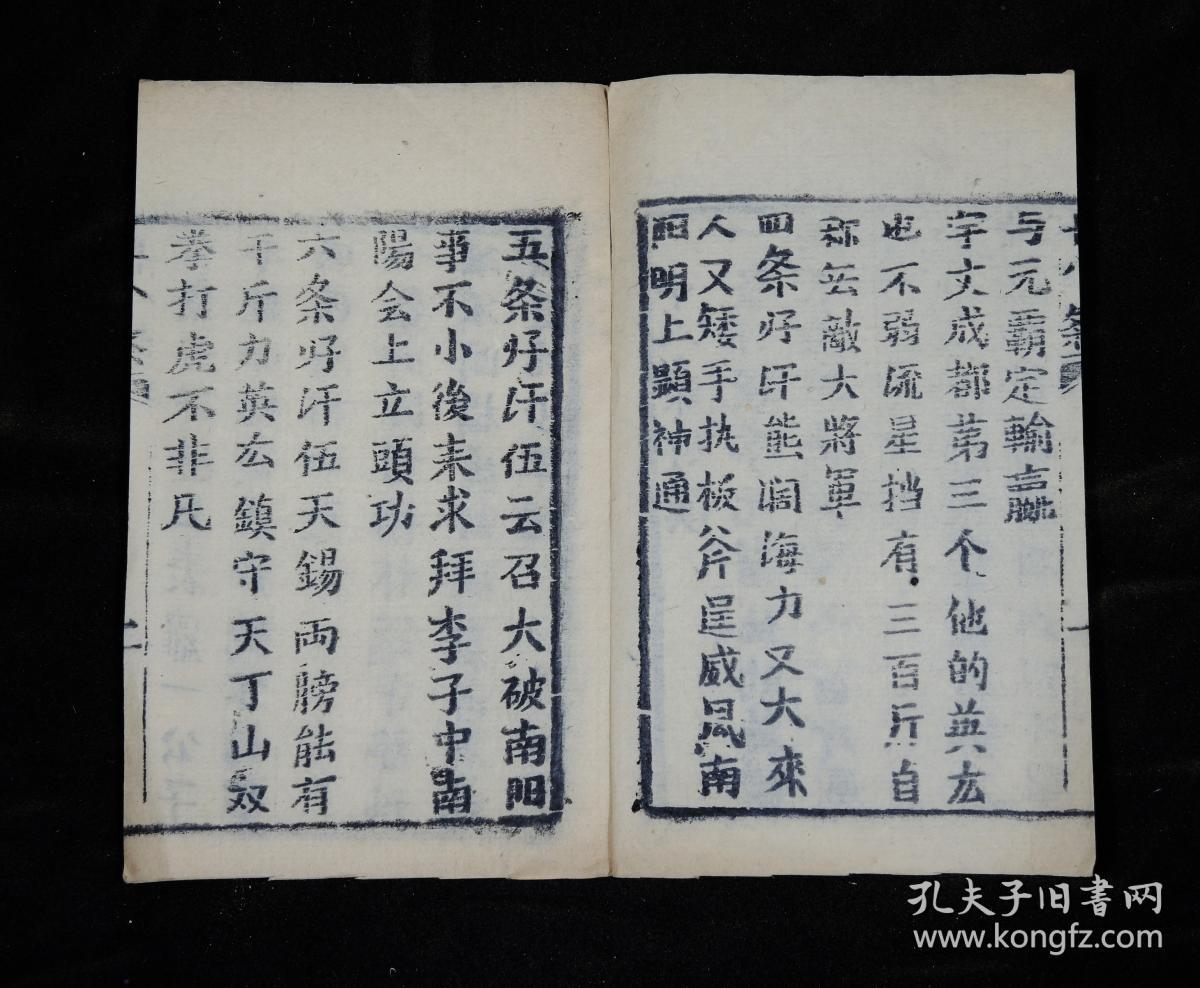 与元霸定輸嬴
宇文成都苐三个他的英厷
也不弱流星挡有三百斤自
称无敵大將軍
四条好汗熊阔海力又大來
人又矮手执板斧逞威风南
阳明上顕神通
五条好汗伍云召大破南阳
事不小後来求拜李子中南
陽会上立頭功
六条好汗伍天錫両膀能有
千斤力英厷鎮守天丁山双
拳打虎不非凡
二
孔夫子旧书网
www.kongfz.com